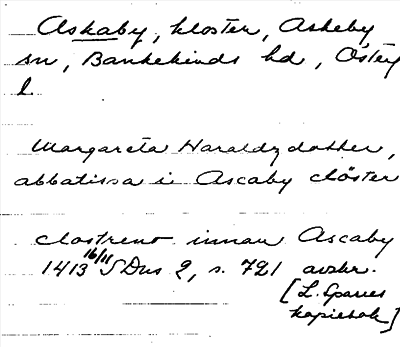 Askaby, kloster, Askeby
sn, Bankekinds hd, Österg
l
Margareta Haraldzdotter,
abbatissa i Ascaby clöster
clostreno innan Ascaby
1413 16/11 SDns 2, s. 721 avskr.
[L. Sparres
kopiebok]